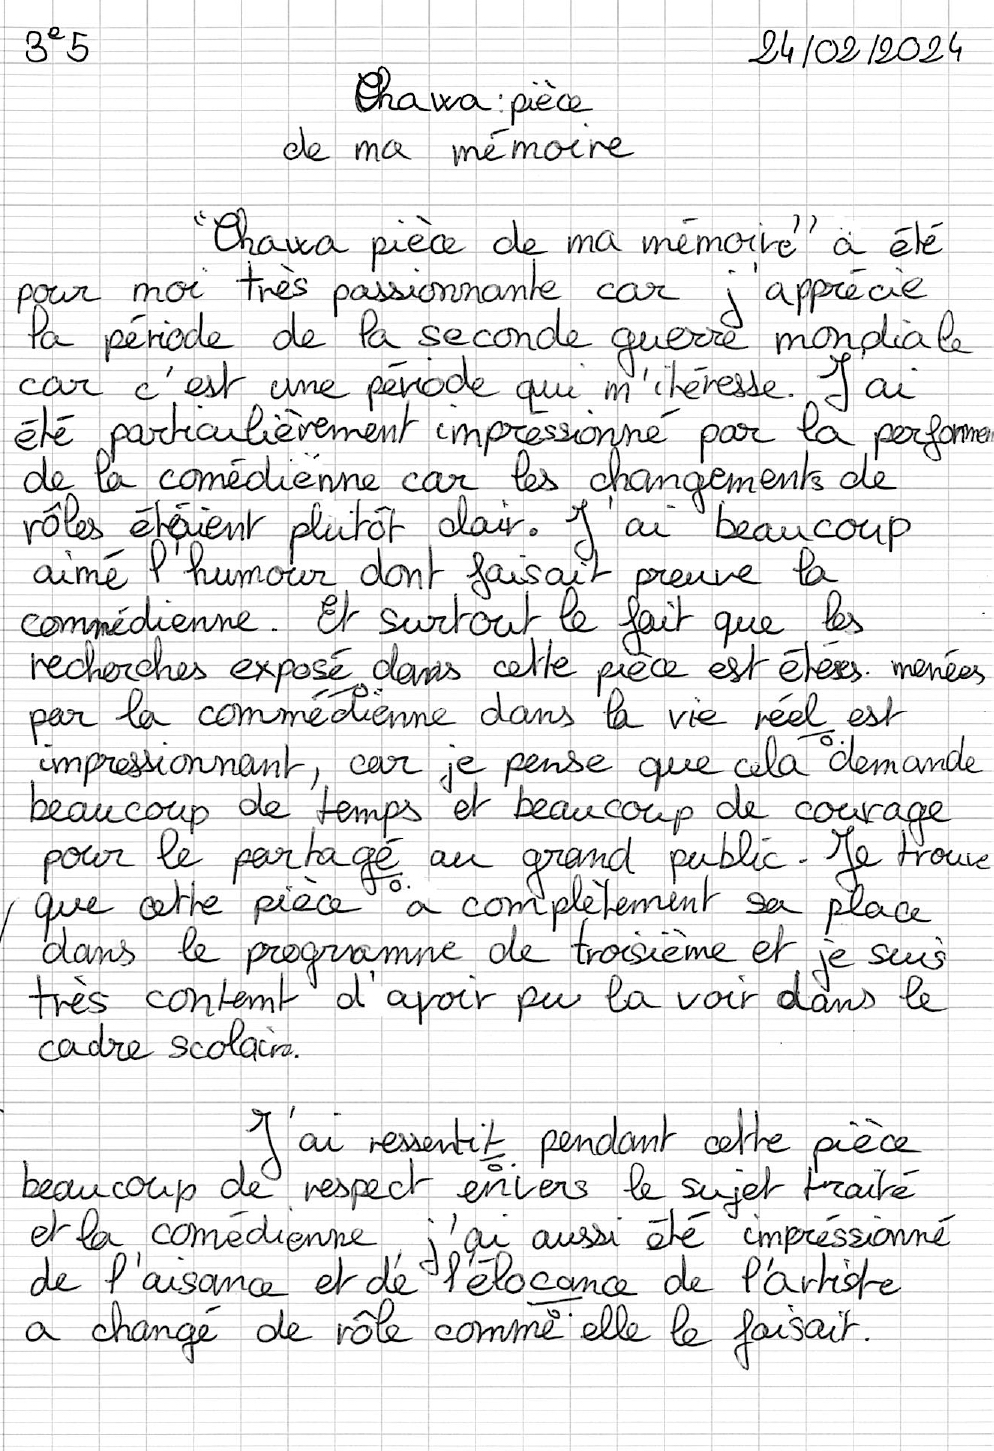 3e5 24/02/2024
Chawa : pièce
de ma mémoire
"Chawa pièce de ma mémoire" a été
pour moi très passionnante car j'apprécie
la période de la seconde guerre mondiale
car c'est une période qui m'itéresse. J'ai
été particulièrement impressionné par la performen
de la comédienne car les changements de
rôles étaient plutôt clair. J'ai beaucoup
aimé l'humour dont faisait preuve la
commédienne. Et surtout le fait que les
recherches exposé dans cette pièce est étées. menées
par la commédienne dans la vie réel est
impressionnant, car je pense que cela demande
beaucoup de temps et beaucoup de courage
pour le partagé au grand public. Je trouve
que cette pièce a complètement sa place
dans le programme de troisième et je suis
très content d'avoir pu la voir dans le
cadre scolaire.
J'ai ressentit pendant cette pièce
beaucoup de respect envers le sujet traité
et la comédienne, j'ai aussi été impréssionné
de l'aisance et de l'élocance de l'artiste
a changé de rôle comme elle le faisait.